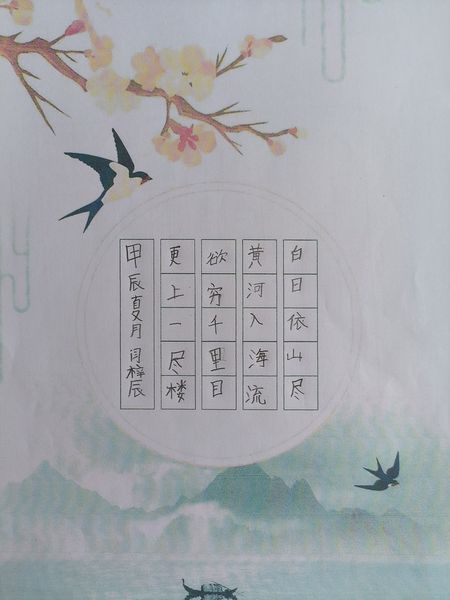 白日依山尽
黄河入海流
欲穷千里目
更上一尽楼
甲辰夏月 闫梓辰